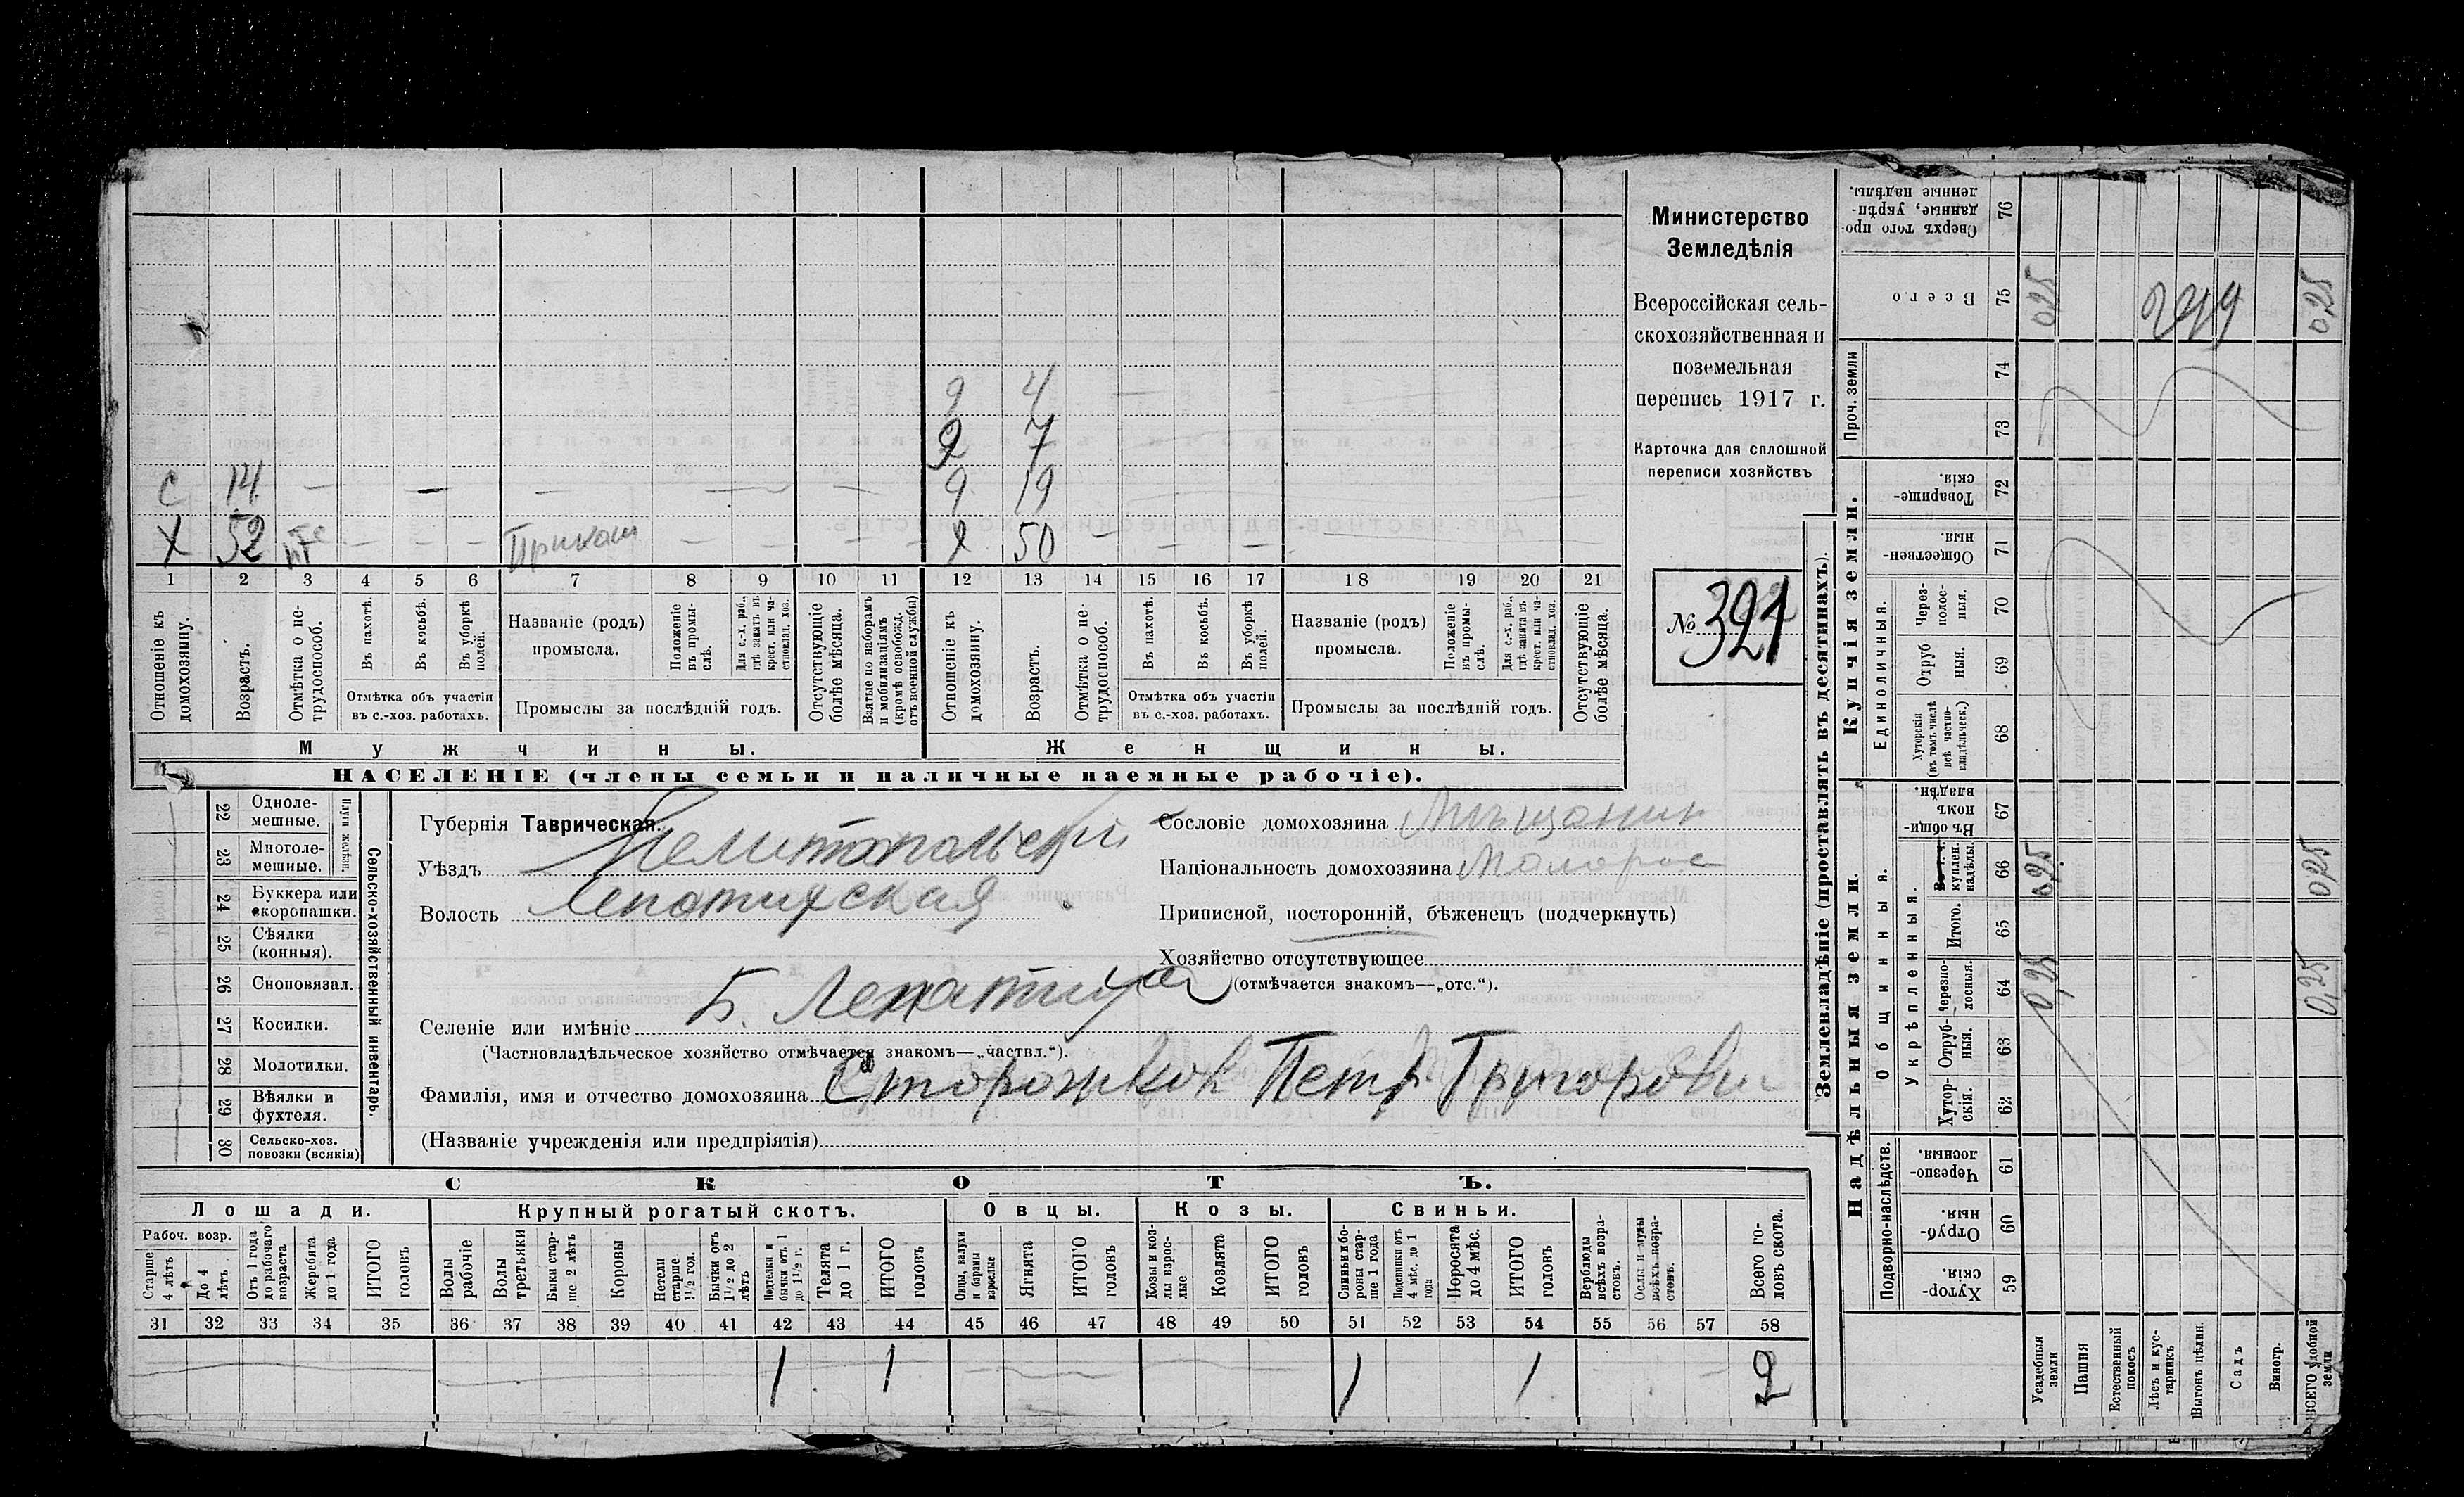 с 14 — — — — — 9 4 —
2 7
9 19
х 52 — — — — — х 50 — — —
1 2 3 4 5 6 7 8 9 10 11 12 13 14 15 16 17 18 19 20 21
Отношеніе къ домохозяину.
Возрастъ.
Отмѣтка о нетрудоспособ.
Въ пахотѣ.
Въ косьбѣ.
Въ уборкѣ полей.
Отмѣтка объ участіи въ с.-хоз. работахъ.
Названіе (родъ) промысла.
Положеніе въ промыслѣ.
Для с.-х. раб., гдѣ занятъ въ крест. или частновлад. хоз.
Промыслы за послѣдній годъ.
Отсутствующіе болѣе мѣсяца.
Взятые по наборамъ и мобилизаціямъ (кромѣ освобожд. отъ военной службы)
Отношеніе къ домохозяину.
Возрастъ.
Отмѣтка о нетрудоспособ.
Въ пахотѣ.
Въ косьбѣ.
Въ уборкѣ полей.
Отмѣтка объ участіи въ с.-хоз. работахъ.
Названіе (родъ) промысла.
Положеніе въ промыслѣ.
Для с.-х. раб., гдѣ занята въ крест. или частновлад. хоз.
Промыслы за послѣдній годъ.
Отсутствующіе болѣе мѣсяца.
Мужчины. Женщины.
НАСЕЛЕНІЕ (члены семьи и наличные наемные рабочіе).
Министерство
Земледѣлія
Всероссійская сель-
скохозяйственная и
поземельная
перепись 1917 г.
Карточка для сплошной
переписи хозяйствъ
№ 321
22 Одноле-мешные.
23 Многоле-мешные.
Плуги желѣзн.
24 Буккера или скоропашки.
25 Сѣялки (конныя).
26 Сноповязал.
27 Косилки.
28 Молотилки.
29 Вѣялки и фухтеля.
30 Сельско-хоз. повозки (всякія)
Сельско-хозяйственный инвентарь.
Губернія Таврическая.
Уѣздъ Мелитопольскій
Волость Лепатихская
Селеніе или имѣніе Б. Лепатиха
(Частновладѣльческое хозяйство отмѣчается знакомъ—„частвл.“).
Фамилія, имя и отчество домохозяина Сторожков Петр Григорови
(Названіе учрежденія или предпріятія)
Сословіе домохозяина Мѣщанин
Національность домохозяина Малорос
Приписной, посторонній, бѣженецъ (подчеркнуть)
Хозяйство отсутствующее
(отмѣчается знакомъ—„отс.“).
СКОТЪ.
Лошади. Крупный рогатый скотъ. Овцы. Козы. Свиньи.
Рабоч. возр.
Старше 4 лѣтъ
До 4 лѣтъ
Отъ 1 года до рабочаго возраста
Жеребята до 1 года
ИТОГО головъ
Волы рабочіе
Волы третьяки
Быки старше 2 лѣтъ
Коровы
Нетели старше 1½ год.
Бычки отъ 1½ до 2 лѣтъ
Подтелки и бычки отъ 1 до 1½ г.
Телята до 1 г.
ИТОГО головъ
Овцы, валухи и бараны взрослые
Ягнята
ИТОГО головъ
Козы и козлы взрослые
Козлята
ИТОГО головъ
Свиньи и боровы старше 1 года
Подсвинки отъ 4 мѣс. до 1 года
Поросята до 4 мѣс.
ИТОГО головъ
Верблюды всѣхъ возрастовъ.
Ослы и мулы всѣхъ возрастовъ.
Всего головъ скота.
31 32 33 34 35 36 37 38 39 40 41 42 43 44 45 46 47 48 49 50 51 52 53 54 55 56 57 58
1 1 1 1 2
Землевладѣніе (проставлять въ десятинахъ).
Надѣльныя земли. Купчія земли. Проч. земли
Подворно-наслѣдств. Общинныя. Укрѣпленныя. Единоличныя.
76 Сверхъ того проданные, укрѣпленные надѣлы.
75 Всего 0,25 0,25
74
73
72 Товарищескія.
71 Общественныя.
70 Черезполосныя.
69 Отрубныя.
68 Хуторскія (въ томъ числѣ всѣ частновладѣльческ.)
67 Въ общинномъ владѣн.
66 В. т. ч. куплен. надѣлы. 0,25 0,25
65 Итого.
64 Черезполосныя. 0,25 0,25
63 Отрубныя.
62 Хуторскія.
61 Черезполосныя.
60 Отрубныя.
59 Хуторскія.
Усадебныя земли
Пашня
Естественный покосъ
Лѣсъ и кустарникъ
Выгонъ цѣлин.
Садъ
Виногр.
ВСЕГО удобной земли